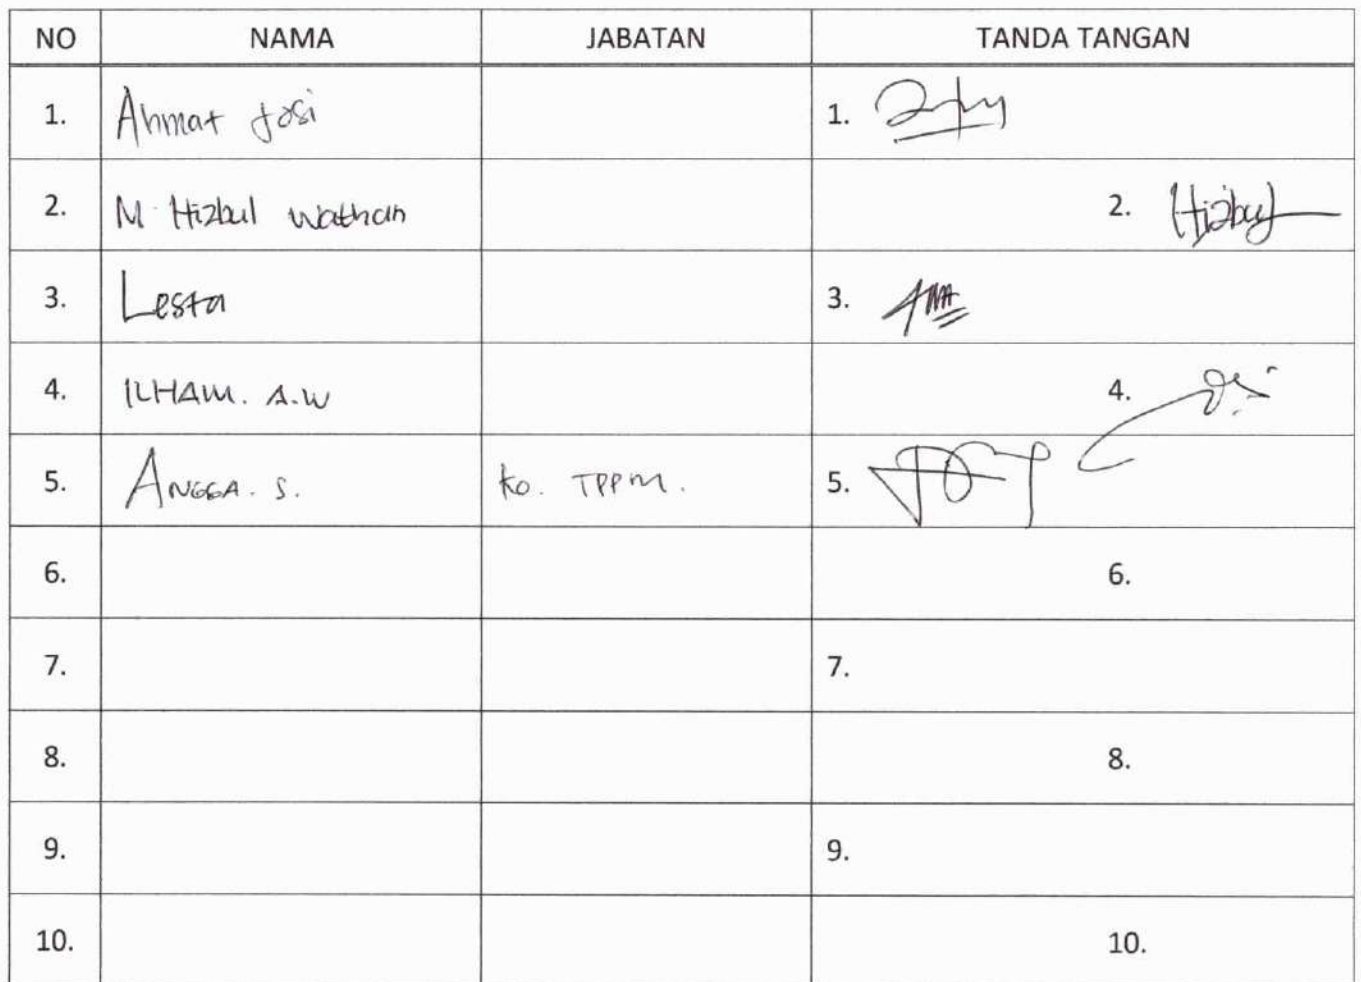 NO NAMA JABATAN TANDA TANGAN
1. Ahmat 1.
2. M. Hizbul Wathan 2. Hizbul
3. Lesta 3.
4. ILHAM. A.W 4.
5. ANGGA. S. Ko. TPPM. 5.
6. 6.
7. 7.
8. 8.
9. 9.
10. 10.